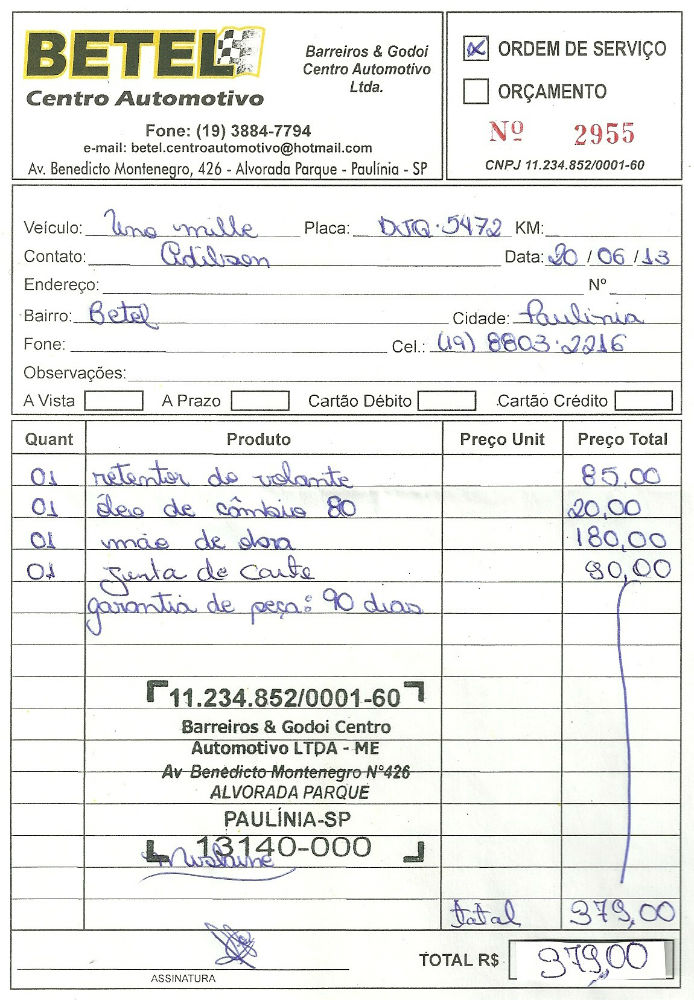 BETEL
Centro Automotivo
Barreiros & Godoi
Centro Automotivo
Ltda.
Fone: (19) 3884-7794
e-mail: betel.centroautomotivo@hotmail.com
Av. Benedicto Montenegro, 426 - Alvorada Parque - Paulínia - SP
X ORDEM DE SERVIÇO
ORÇAMENTO
Nº 2955
CNPJ 11.234.852/0001-60
Veículo: Uno mille Placa: DJQ-5472 KM:
Contato: Adilson Data: 20/06/13
Endereço: Nº
Bairro: Betel Cidade: Paulinia
Fone: Cel.: (19) 8803-2216
Observações:
A Vista A Prazo Cartão Débito Cartão Crédito
Quant Produto Preço Unit Preço Total
01 retentor do volante 85,00
01 óleo de câmbio 80 20,00
01 mão de obra 180,00
01 junta do Carte 90,00
garantia de peça: 90 dias
11.234.852/0001-60
Barreiros & Godoi Centro
Automotivo LTDA - ME
Av Benedicto Montenegro N°426
ALVORADA PARQUE
PAULÍNIA-SP
13140-000
total 379,00
TOTAL R$ 379,00
ASSINATURA